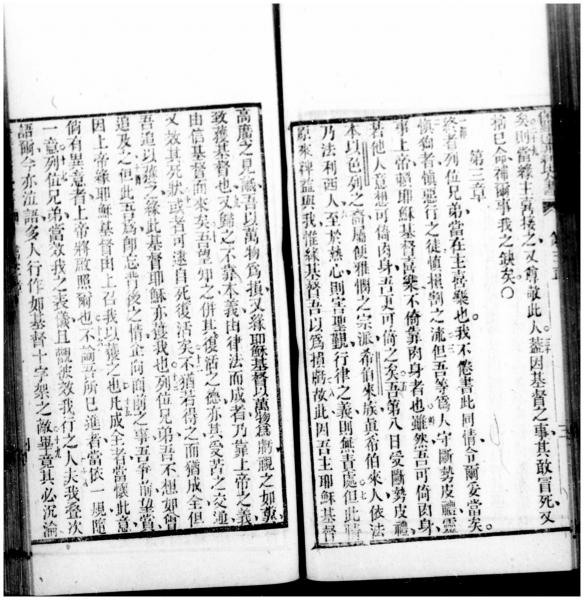 矣則當緣主喜接之又尊敬此人蓋因基督之事其敢冒死又
捨己命補爾事我之缺矣〇
第三章
終者列位兄弟當在主喜樂也我不憊書此同情令爾妥當矣
慎狗者慎惡行之徒慎損割之流但吾等為人守斷勢皮禮靈
事上帝賴耶穌基督喜樂不倚靠肉身者也雖然吾可倚肉身
若他人意想可倚肉身吾更可倚之矣吾第八日受斷勢皮禮
本以色列之裔屬便雅憫之宗派希伯來族真希伯來人依法
乃法利西人至於熱心則害聖覲行律之義則無責處但此情
原來裨益與我惟緣基督吾以為損將故此因吾主耶穌基督
高廣之見識吾以萬物為損又緣耶穌基督以萬物為將覲之如糞
致獲基督也又歸之不靠本義由律法而成者乃靠上帝之義
由信基督而來矣吾萬知之併其復活之德亦其受苦之交通
又效其死狀或者可逮自死復活矣不猶若得之而猶成全但
吾追以獲之緣此基督耶穌亦獲我也列位兄弟吾不想如猶
追及之但此吾為即忘背後之情企向面前之事吾爭前望賞
因上帝緣耶穌基督由上召我以獲之也凡成全者當懷此意
倘有異意者上帝將啟照爾也不論吾所已進者當依一規隨
一意列位兄弟當效我之表儀且觀彼效我行之人夫我疊次
語爾今亦泣語多人行作如基督十字架之敵畢竟其必沉淪